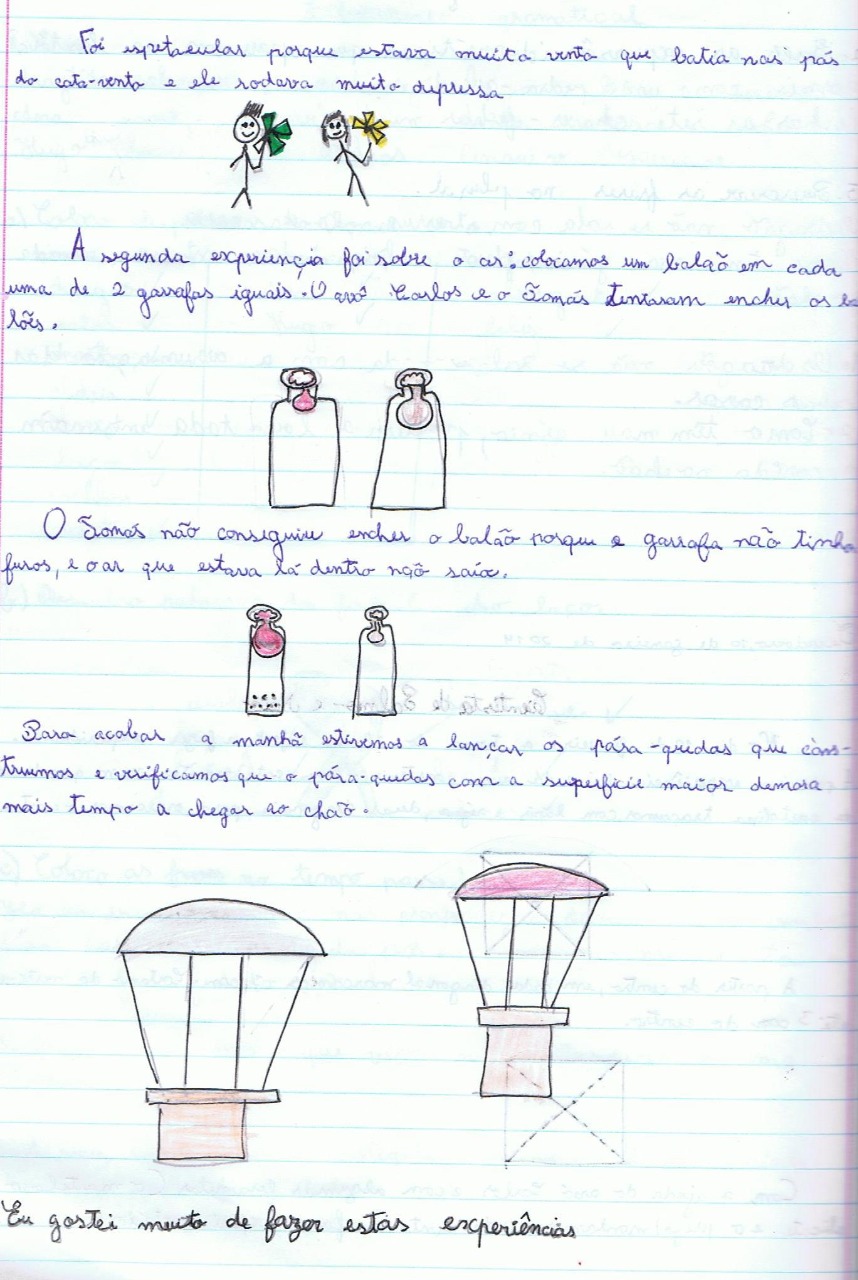 Foi espetacular porque estava muito vento que batia nas pás
do cata-vento e ele rodava muito depressa
A segunda experiência foi sobre o ar: colocamos um balão em cada
uma de 2 garrafas iguais. O avô Carlos e o Tomás tentaram encher os ba
lões.
O Tomás não conseguiu encher o balão porque a garrafa não tinha
furos, e o ar que estava lá dentro não saía.
Para acabar a manhã estivemos a lançar os pára-quedas que cons-
truímos e verificamos que o pára-quedas com a superfície maior demora
mais tempo a chegar ao chão.
Eu gostei muito de fazer estas experiências